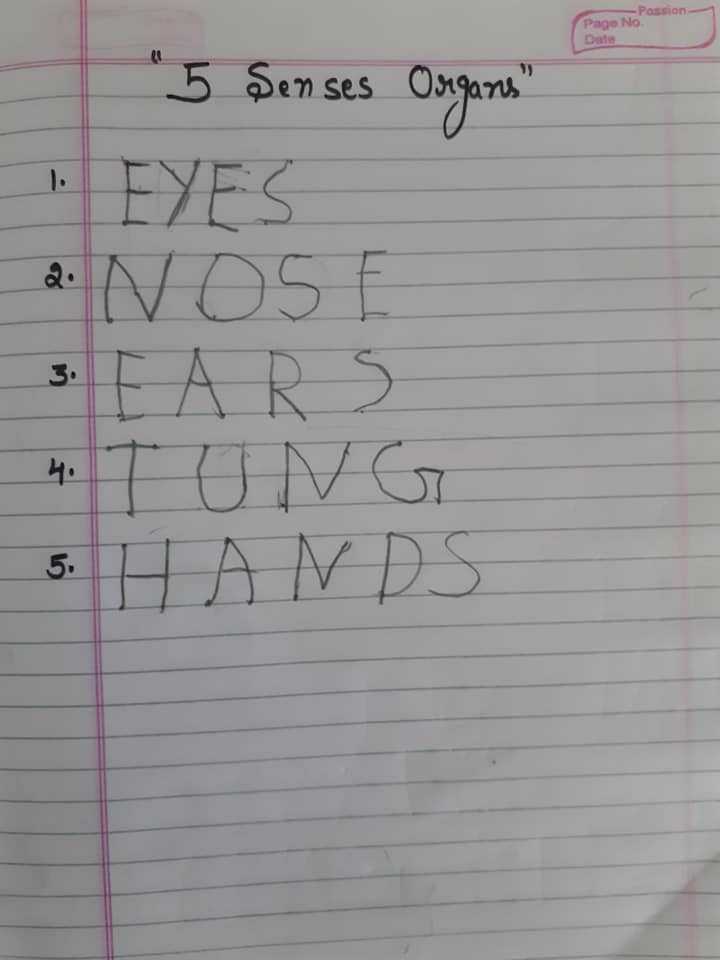 Passion
Page No.
Date
"5 Senses Organs"
1. EYES
2. NOSE
3. EARS
4. TUNG
5. HANDS